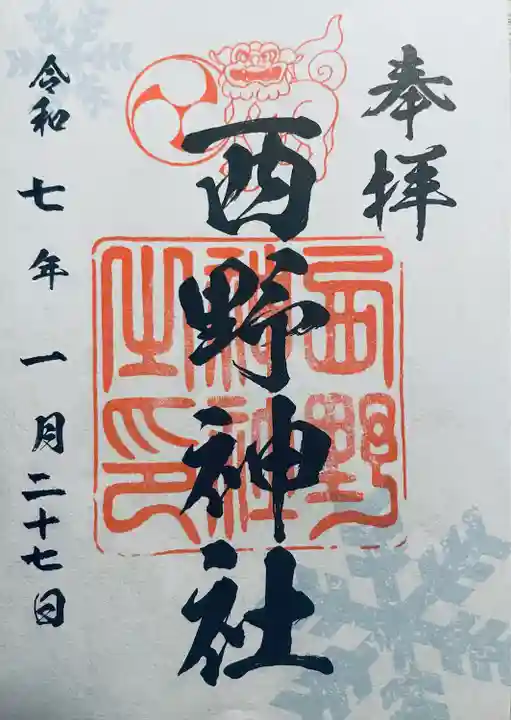 奉拝
西野神社
西野
神社
之印
令和七年一月二十七日